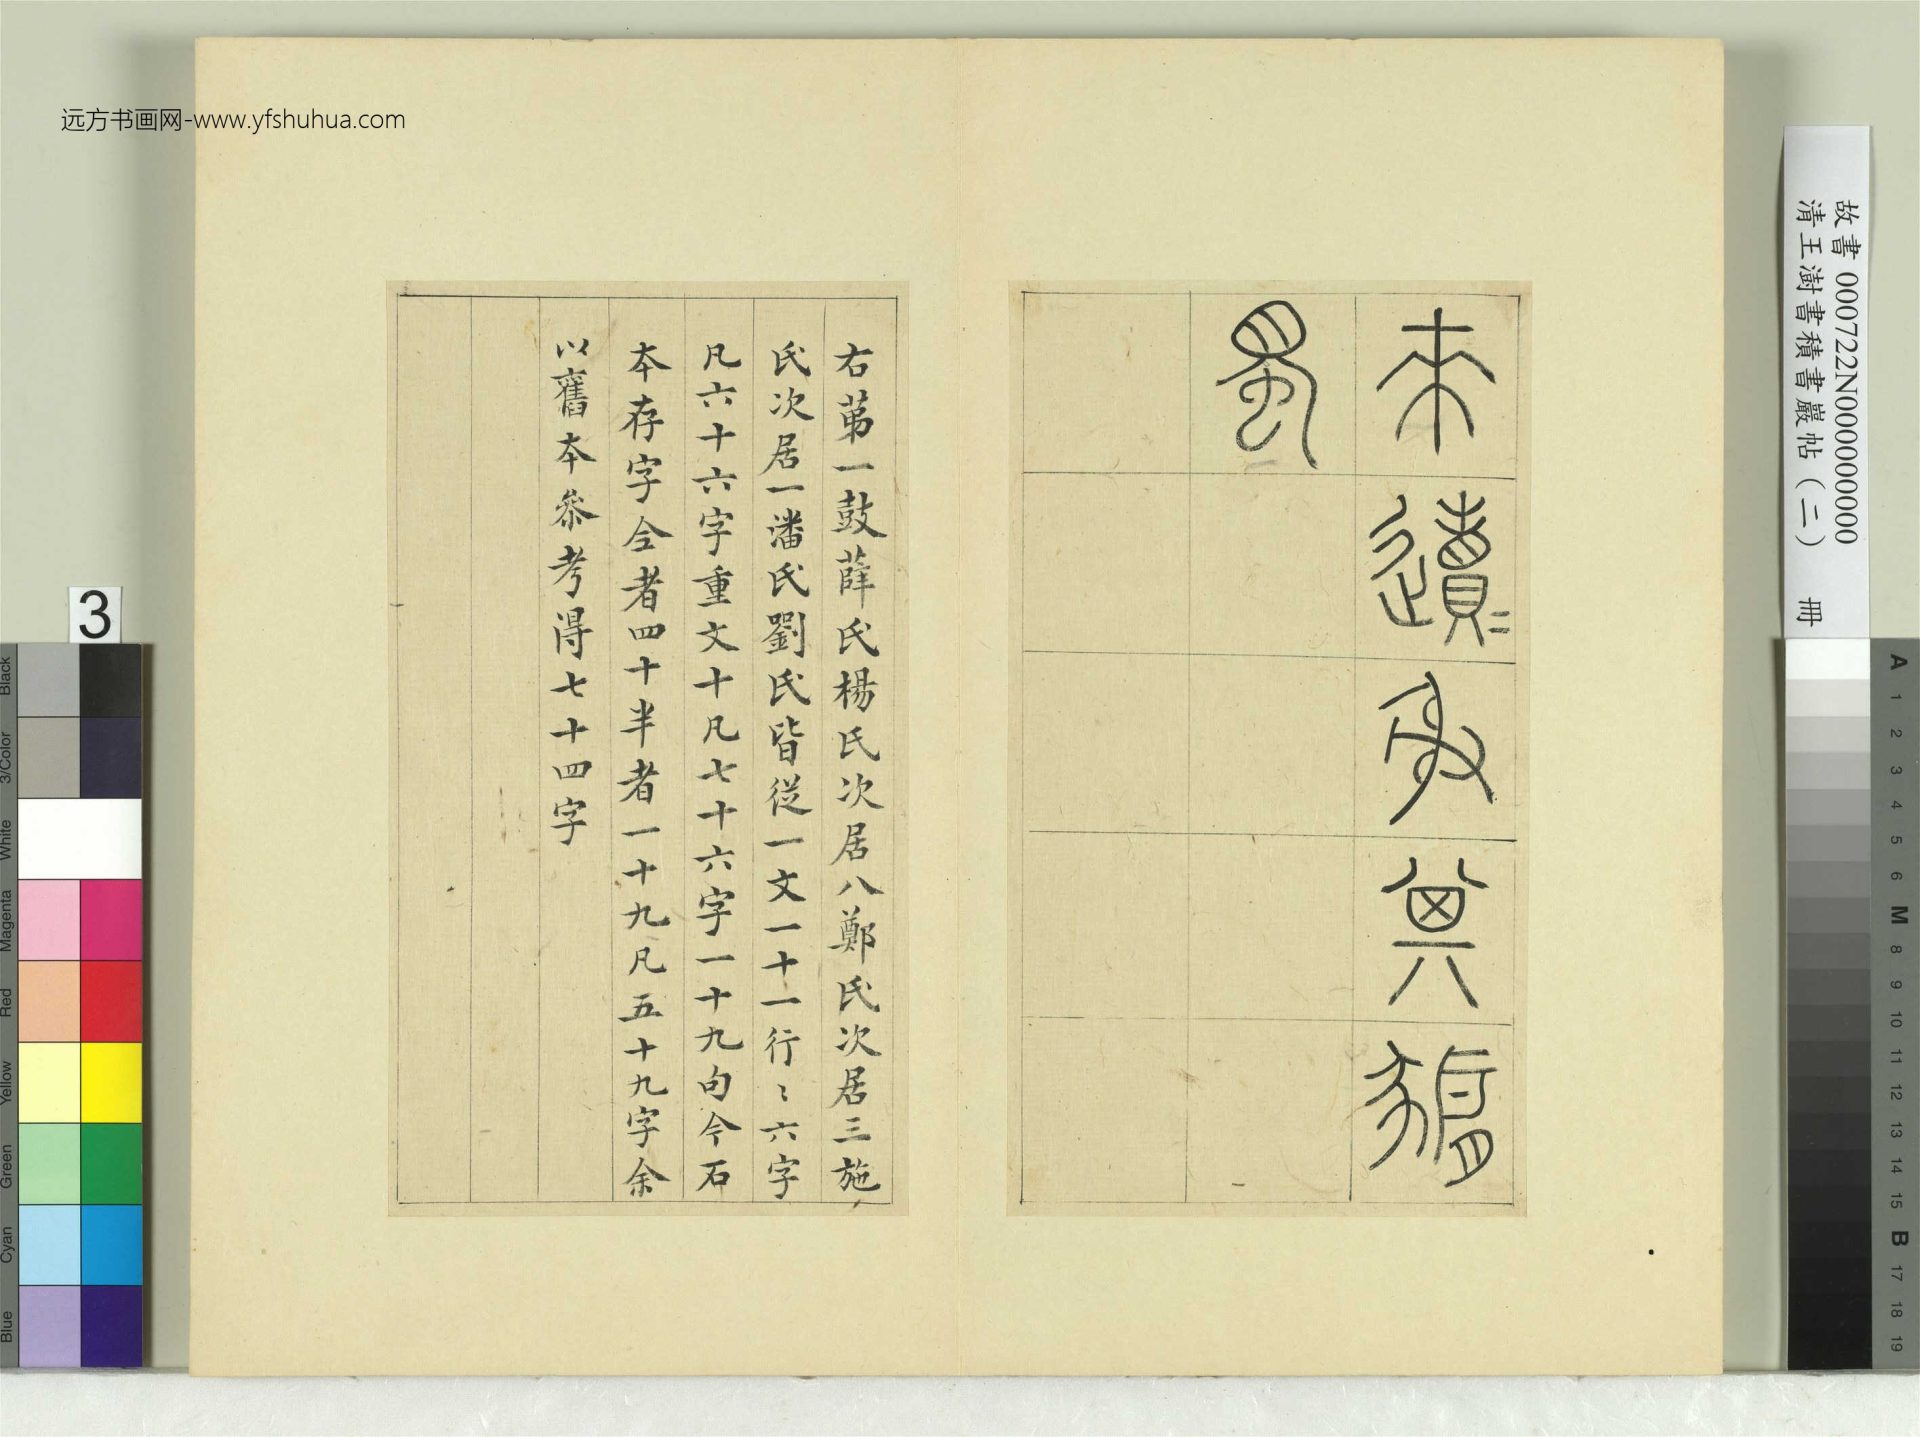 远方书画网-www.yfshuhua.com
故書000722N000000000
清王澍書積書巖帖（二） 冊
來䢱〻射其豜
蜀
右苐一鼓薛氏楊氏次居八鄭氏次居三施
氏次居一潘氏劉氏皆從一文一十一行〻六字
凡六十六字重文十凡七十六字一十九句今石
本存字全者四十半者一十九凡五十九字余
以舊本叅考得七十四字
3
Black
3/Color
White
Magenta
Red
Yellow
Green
Cyan
Blue
A 1 2 3 4 5 6 M 8 9 10 11 12 13 14 15 B 17 18 19